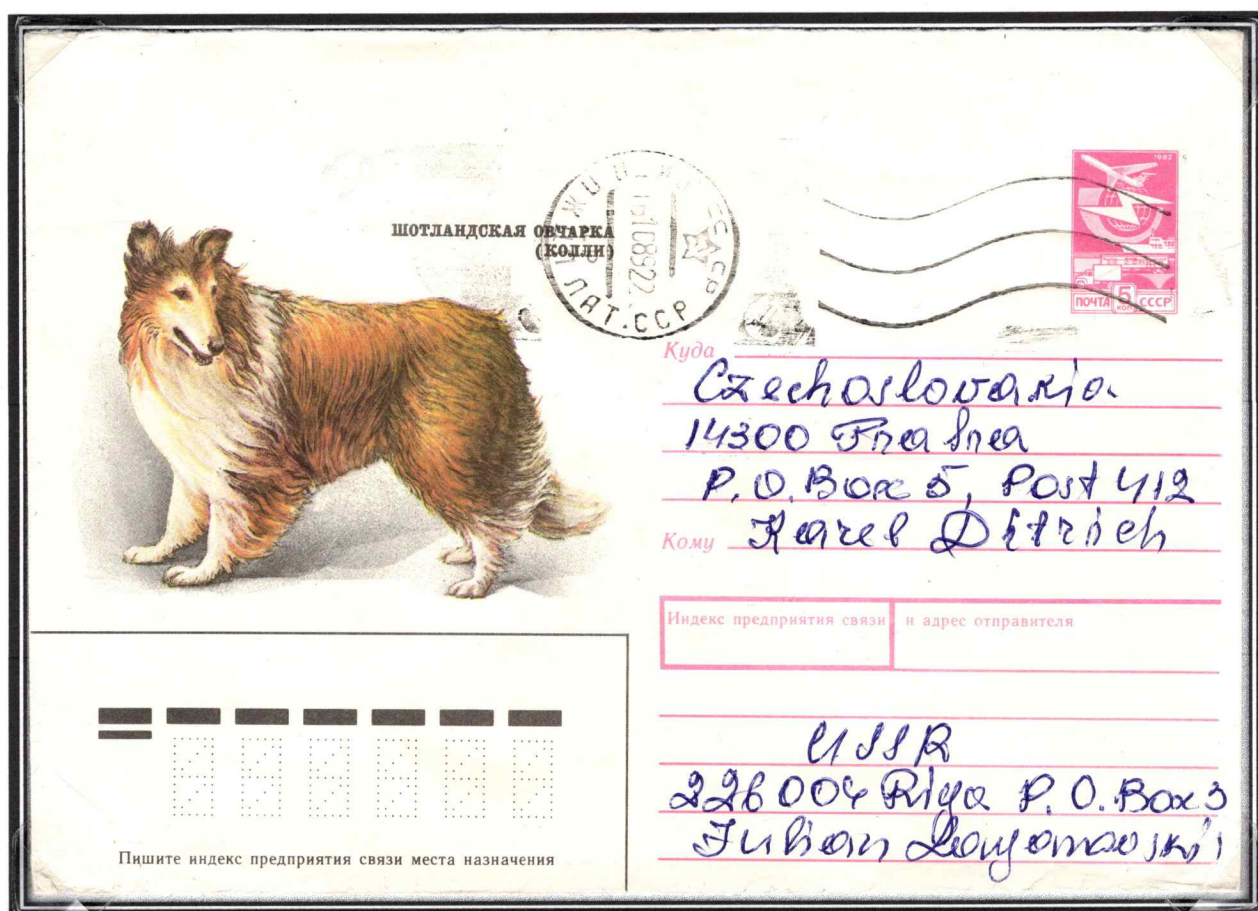 ШОТЛАНДСКАЯ ОВЧАРКА
(КОЛЛИ)
ЛАТ.ССР
1982
ПОЧТА 5 КОП СССР
Куда
Czechoslovakia
14300 Praha
P.O.Box 5, Post 412
Кому Karel Ditrich
Индекс предприятия связи и адрес отправителя
USSR
226004 Riga P.O.Box 3
Julian
Пишите индекс предприятия связи места назначения